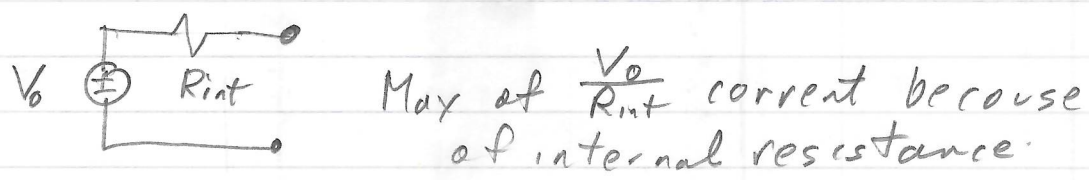 V₀ Rint Max of V₀/Rint corrent becouse
of internal resistance.